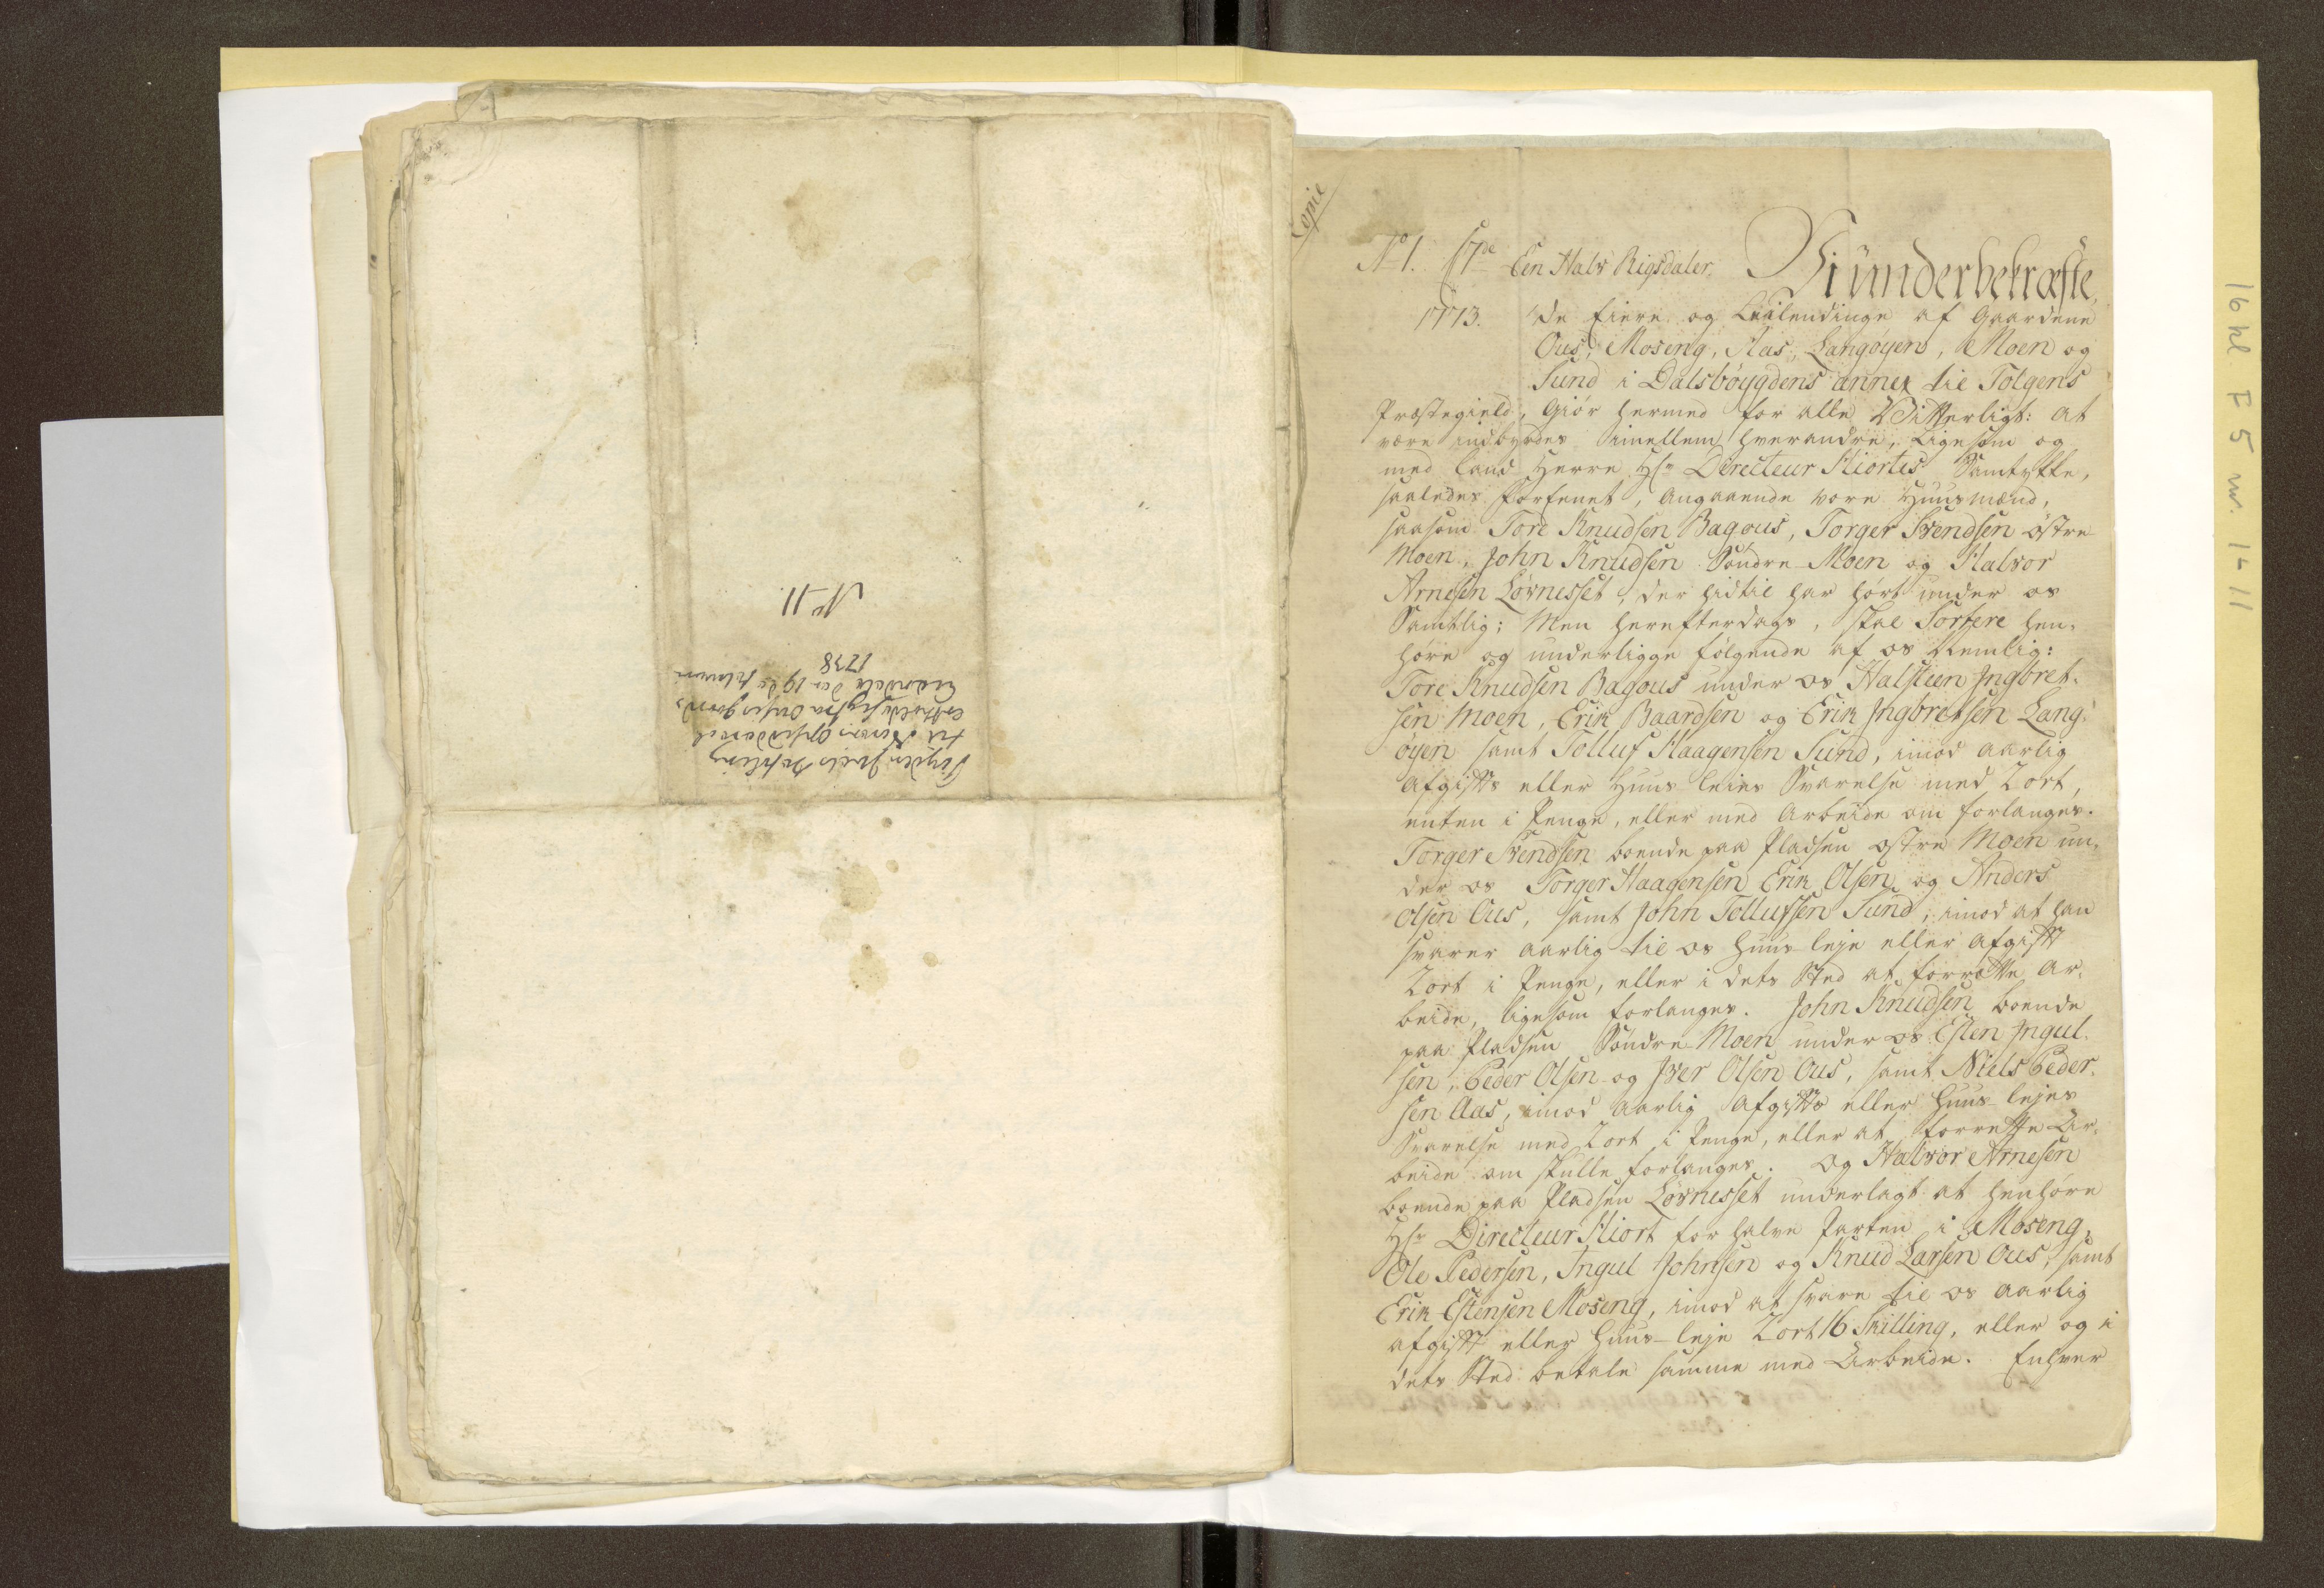 No 11.
til
Leensdahl den 19de
1738
Copie
No 1. 17de Een Halv Rigsdaler.
1773.
Vi underbekræfte,
de Eiere og Leilendinge af Gaardene
Ous, Moseng, Aas, Langøyen, Moen og
Sund i Dalsbøygdens annex til Tolgens
Præstegield, Giør hermed for alle Vitterligt: at
være indbyrdes imellem hverandre, ligesom og
med Land Herre Hr Directeur Hiortes Samtykke,
saaledes Forenet, angaaende vore Huusmænd,
saasom Tore Knudsen Bagous, Torger Svendsen østre
Moen, John Knudsen Søndre Moen og Halvor
Arnesen Løvnesset, der hidtil har hørt under os
Samtlig; Men herefterdags, skal Sortere hen-
høre og underligge følgende af os Nemlig:
Tore Knudsen Bagous under os Halsteen Ingbret-
sen Moen, Erik Baardsen og Erik Ingbretsen Lang-
øyen samt Tolluf Haagensen Sund, imod aarlig
Afgifts eller Huus leies Svarelse med 2 ort,
enten i Penge, eller med Arbeide om forlanges.
Torger Svendsen boende paa Pladsen østre Moen un-
der os Torger Haagensen Erik Olsen og Anders
Olsen Ous, samt John Tollufsen Sund, imod at han
svarer aarlig til os Huus leje eller Afgift
2 ort i Penge, eller i dets Sted at forrætte Ar-
beide, ligesom forlanges. John Knudsen boende
paa Pladsen Søndre Moen under os Esten Ingul-
sen, Peder Olsen og Iver Olsen Ous, samt Niels Peder-
sen Aas, imod aarlig Afgifts eller Huus-lejes
Svarelse med 2 ort i Penge, eller at forrette Ar-
beide om skulle forlanges. Og Halvor Arnesen
boende paa Pladsen Løvnesset underlagt at henhøre
Hr Directeur Hiort for halve Parten i Moseng,
Ole Pedersen, Ingul Johnsen og Knud Larsen Ous, samt
Erik Estensen Moseng, imod at svare til os aarlig
afgift eller Huus-leje 2 ort 16 Skilling, eller og i
dets Sted betale samme med Arbeide. Enhver
16 pl. F 5 nr. 1-11